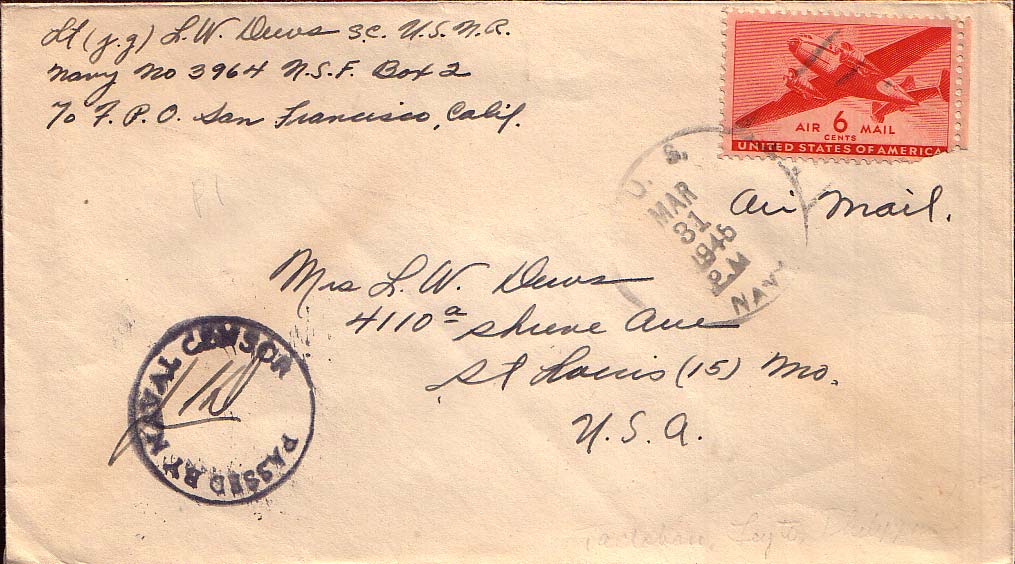 Lt (j.g) L.W. Dews SC. U.S.N.R.
Navy No 3964 N.S.F. Box 2
℅ F.P.O. San Francisco, Calif.
AIR 6 MAIL
CENTS
UNITED STATES OF AMERICA
U. S. NAVY
MAR
31
1945
PM
Air Mail.
P1
Mrs L.W. Dews
4110a Shreve Ave
St Louis (15) Mo.
U.S.A.
PASSED BY NAVAL CENSOR
Tacloban, Leyte,